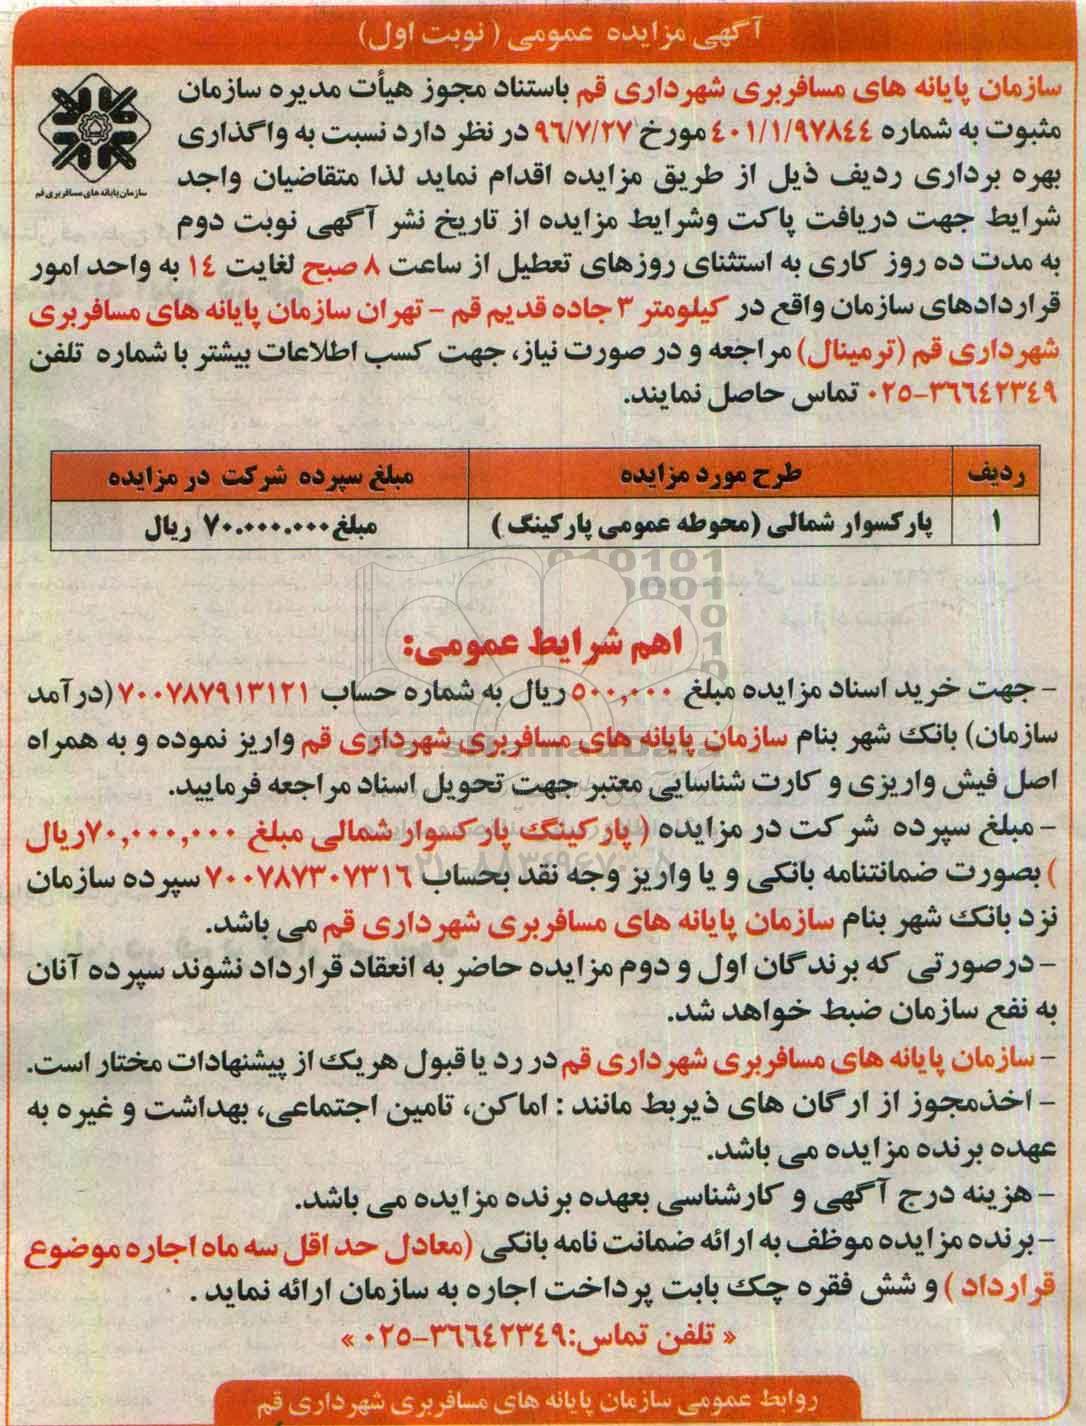 آگهی مزایده عمومی ( نوبت اول)
سازمان پایانه های مسافربری شهرداری قم باستناد مجوز هیأت مدیره سازمان
مثبوت به شماره ٤٠١/١/٩٧٨٤٤ مورخ ٩٦/٧/٢٧ در نظر دارد نسبت به واگذاری
بهره برداری ردیف ذیل از طریق مزایده اقدام نماید لذا متقاضیان واجد
شرایط جهت دریافت پاکت وشرایط مزایده از تاریخ نشر آگهی نوبت دوم
به مدت ده روز کاری به استثنای روزهای تعطیل از ساعت ٨ صبح لغایت ١٤ به واحد امور
قراردادهای سازمان واقع در کیلومتر ٣ جاده قدیم قم - تهران سازمان پایانه های مسافربری
شهرداری قم (ترمینال) مراجعه و در صورت نیاز، جهت کسب اطلاعات بیشتر با شماره تلفن
٠٢٥-٣٦٦٤٢٣٤٩ تماس حاصل نمایند.
سازمان پایانه های مسافربری قم
ردیف طرح مورد مزایده مبلغ سپرده شرکت در مزایده
١ پارکسوار شمالی (محوطه عمومی پارکینگ ) مبلغ ٧٠.٠٠٠.٠٠٠ ریال
اهم شرایط عمومی:
- جهت خرید اسناد مزایده مبلغ ٥٠٠,٠٠٠ ریال به شماره حساب ٧٠٠٧٨٧٩١٣١٢١ (درآمد
سازمان) بانک شهر بنام سازمان پایانه های مسافربری شهرداری قم واریز نموده و به همراه
اصل فیش واریزی و کارت شناسایی معتبر جهت تحویل اسناد مراجعه فرمایید.
- مبلغ سپرده شرکت در مزایده ( پارکینگ پارکسوار شمالی مبلغ ٧٠,٠٠٠,٠٠٠ریال
) بصورت ضمانتنامه بانکی و یا واریز وجه نقد بحساب ٧٠٠٧٨٧٣٠٧٣١٦ سپرده سازمان
نزد بانک شهر بنام سازمان پایانه های مسافربری شهرداری قم می باشد.
- درصورتی که برندگان اول و دوم مزایده حاضر به انعقاد قرارداد نشوند سپرده آنان
به نفع سازمان ضبط خواهد شد.
- سازمان پایانه های مسافربری شهرداری قم در رد یا قبول هریک از پیشنهادات مختار است.
- اخذمجوز از ارگان های ذیربط مانند : اماکن، تامین اجتماعی، بهداشت و غیره به
عهده برنده مزایده می باشد.
- هزینه درج آگهی و کارشناسی بعهده برنده مزایده می باشد.
- برنده مزایده موظف به ارائه ضمانت نامه بانکی (معادل حداقل سه ماه اجاره موضوع
قرارداد ) و شش فقره چک بابت پرداخت اجاره به سازمان ارائه نماید .
« تلفن تماس:٣٦٦٤٢٣٤٩-٠٢٥ »
روابط عمومی سازمان پایانه های مسافربری شهرداری قم